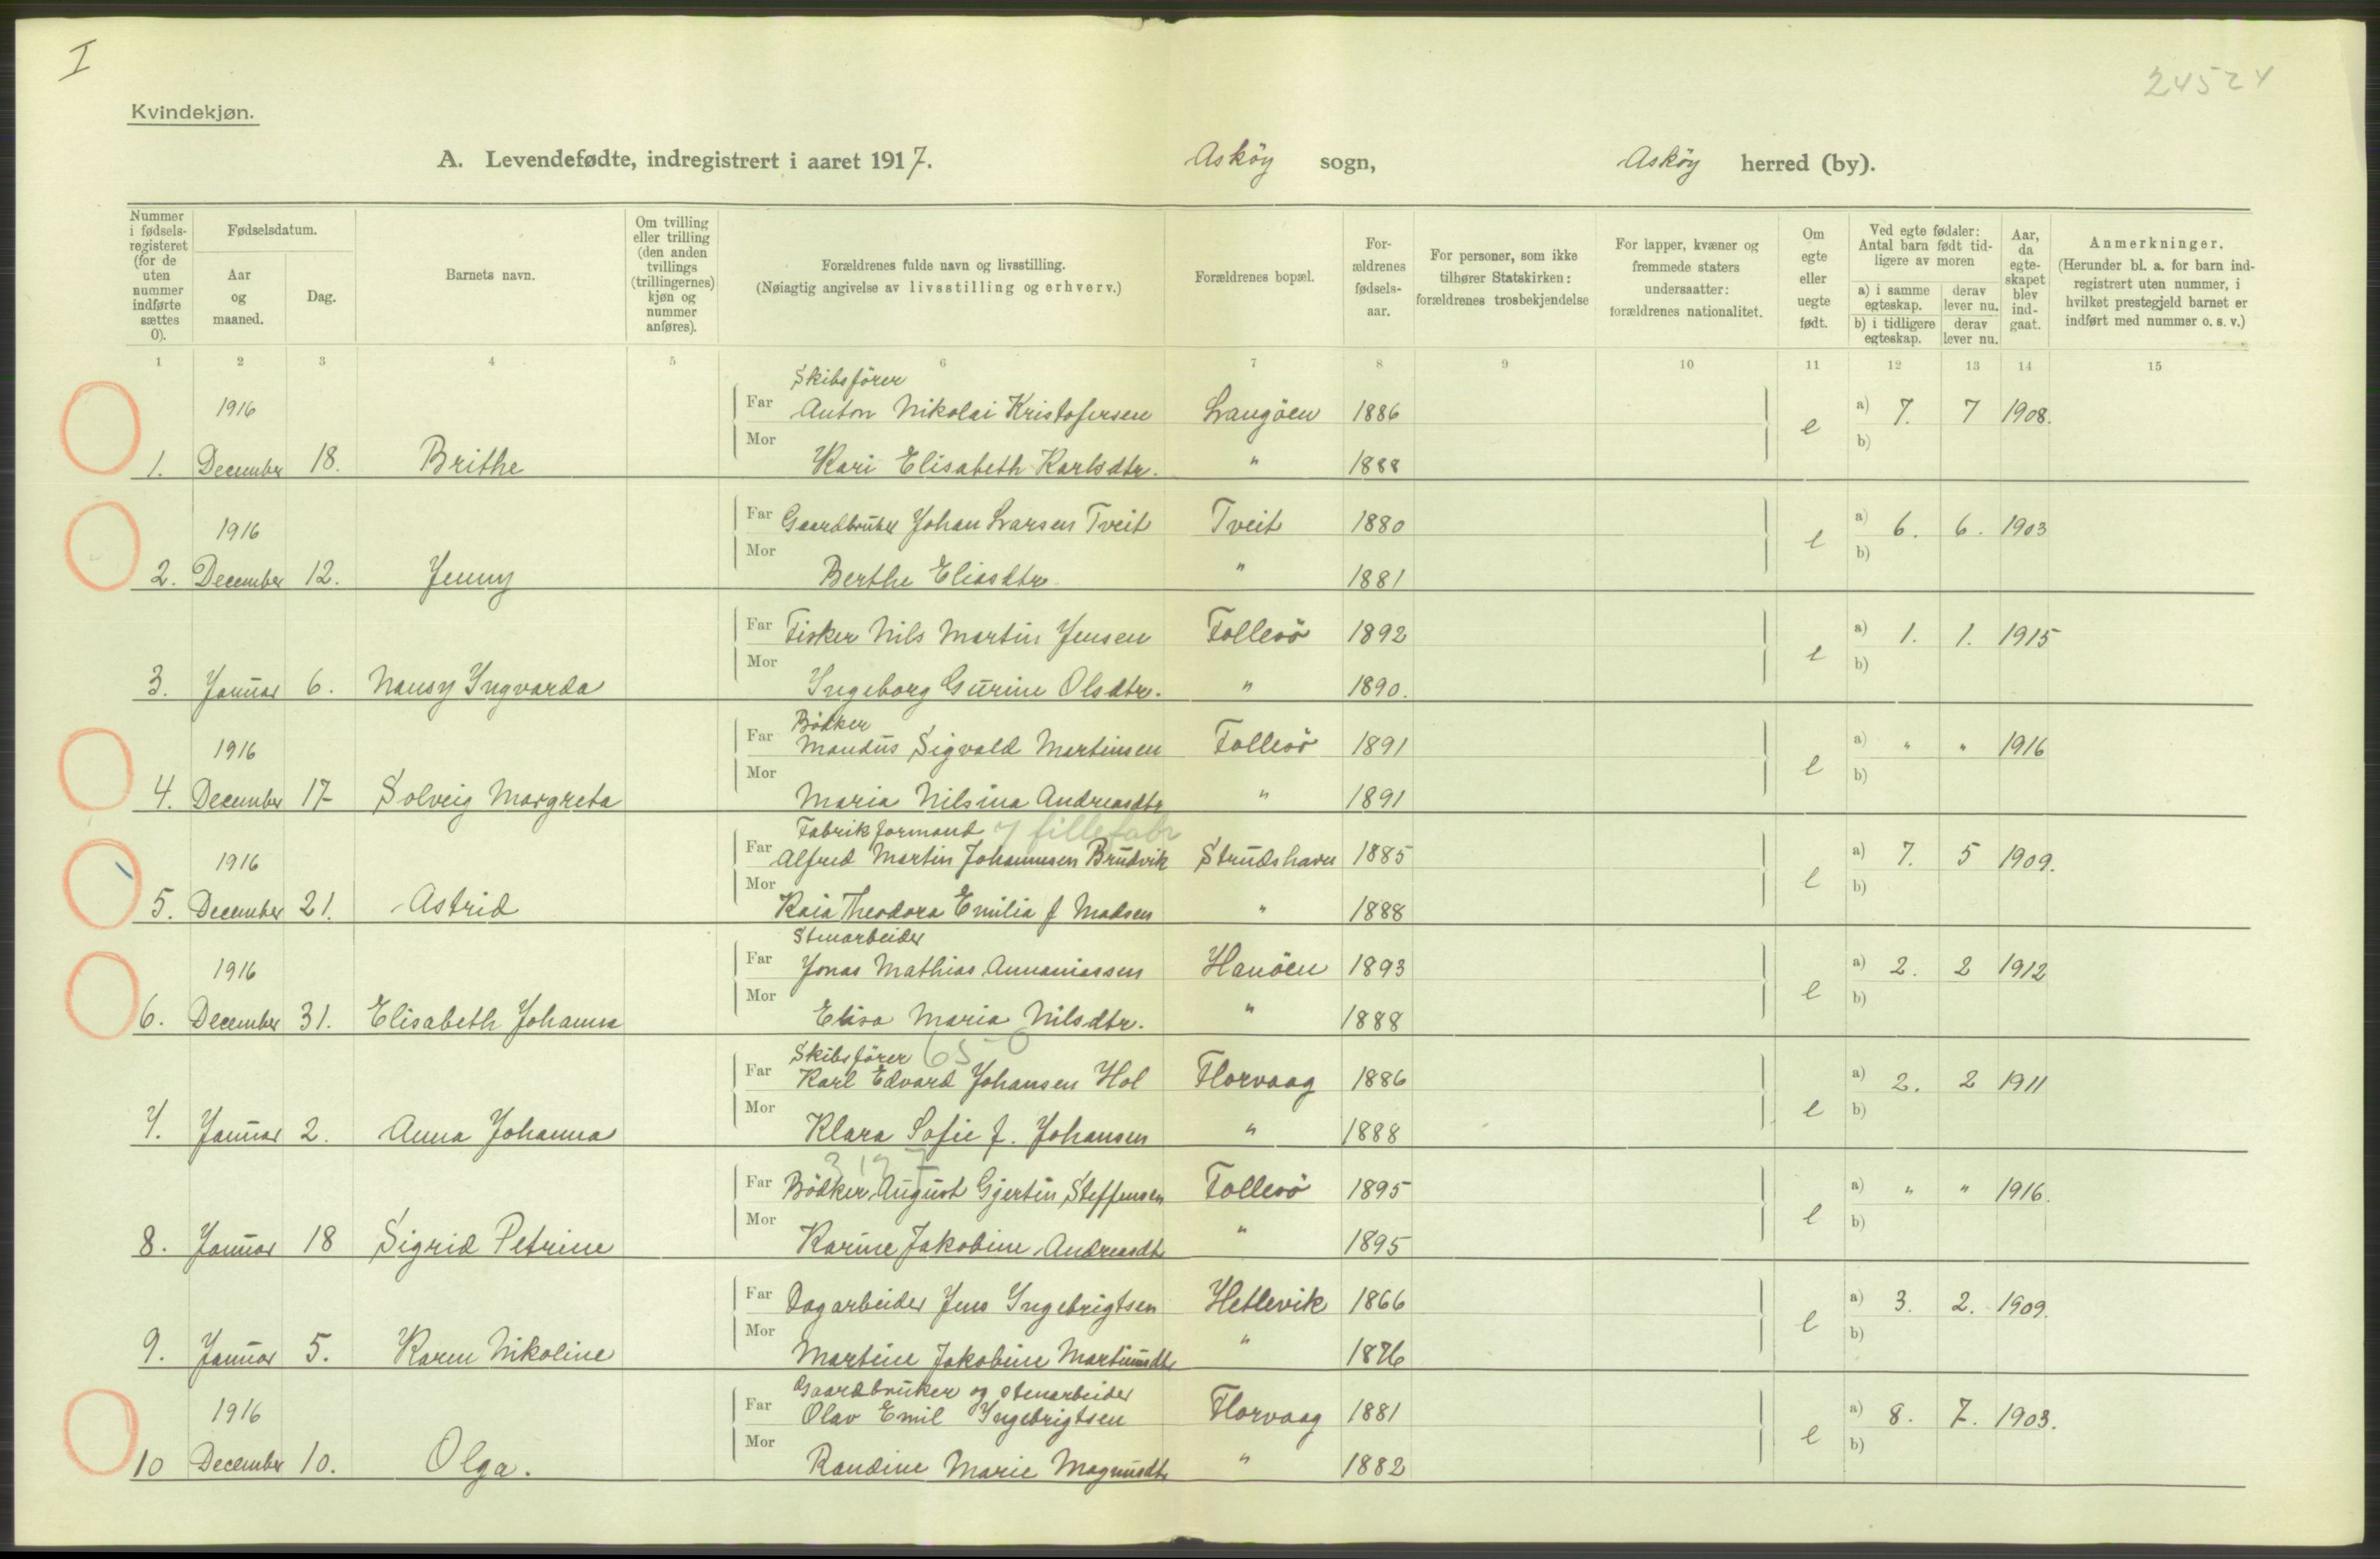 I
24524
Kvindekjøn.
A. Levendefødte, indregistrert i aaret 1917. Asköy sogn, Asköy herred (by).
Nummer i fødsels-registeret (for de uten nummer indførte sættes 0). Fødselsdatum. Aar og maaned. Dag. Barnets navn. Om tvilling eller trilling (den anden tvillings (trillingernes) kjøn og nummer anføres). Forældrenes fulde navn og livsstilling. (Nøiagtig angivelse av livsstilling og erhverv.) Forældrenes bopæl. For-ældrenes fødsels-aar. For personer, som ikke tilhører Statskirken: forældrenes trosbekjendelse For lapper, kvæner og fremmede staters undersaatter: forældrenes nationalitet. Om egte eller uegte født. Ved egte fødsler: Antal barn født tid-ligere av moren a) i samme egteskap. derav lever nu. b) i tidligere egteskap. derav lever nu. Aar, da egte-skapet blev ind-gaat. Anmerkninger. (Herunder bl. a. for barn ind-registrert uten nummer, i hvilket prestegjeld barnet er indført med nummer o. s. v.)
1 2 3 4 5 6 7 8 9 10 11 12 13 14 15
Skibsförer
1916 Far Anton Nikolai Kristofersen Langöen 1886 e a) 7. 7 1908.
1. December 18. Brithe Mor Kari Elisabeth Karlsdtr. " 1888 b)
1916 Far Gaardbruker Johan Larsen Tveit Tveit 1880 e a) 6. 6. 1903
2. December 12. Jenny Mor Berthe Eliasdtr. " 1881 b)
Far Fisker Nils Martin Jensen Follesö 1892 e a) 1. 1. 1915
3. Januar 6. Nansy Ingvarda Mor Ingeborg Gurine Olsdtr. " 1890. b)
Bödker
1916 Far Mandus Sigvald Martinsen Follesö 1891 e a) " " 1916
4. December 17 Solveig Margreta Mor Maria Nilsina Andreasdtr " 1891 b)
Fabrikformand / fillefabr
1916 Far Alfred Martin Johannesen Brudvik Strudshavn 1885 e a) 7. 5 1909.
5. December 21. Astrid Mor Kaia Theodora Emilia f Madsen " 1888 b)
Stenarbeider
1916 Far Jonas Mathias Annaniassen Hanöen 1893 e a) 2. 2 1912
6. December 31. Elisabeth Johanna Mor Elisa Maria Nilsdtr. " 1888 b)
Skibsförer 650
Far Karl Edvard Johansen Hol Florvaag 1886 e a) 2. 2 1911
7. Januar 2. Anna Johanna Mor Klara Sofie f. Johansen " 1888 b)
Far Bödker August Gjertin Steffensen Follesö 1895 e a) " " 1916.
8. Januar 18 Sigrid Petrine Mor Karine Jakobine Andreasdtr " 1895 b)
Far Dagarbeider Jens Ingebrigtsen Hetlevik 1866 e a) 3. 2. 1909.
9. Januar 5. Karen Nikoline Mor Martine Jakobine Martinusdtr " 1876 b)
Gaardbruker og stenarbeider
1916 Far Olav Emil Ingebrigtsen Florvaag 1881 e a) 8. 7. 1903.
10 December 10. Olga. Mor Randine Marie Magnusdtr " 1882 b)